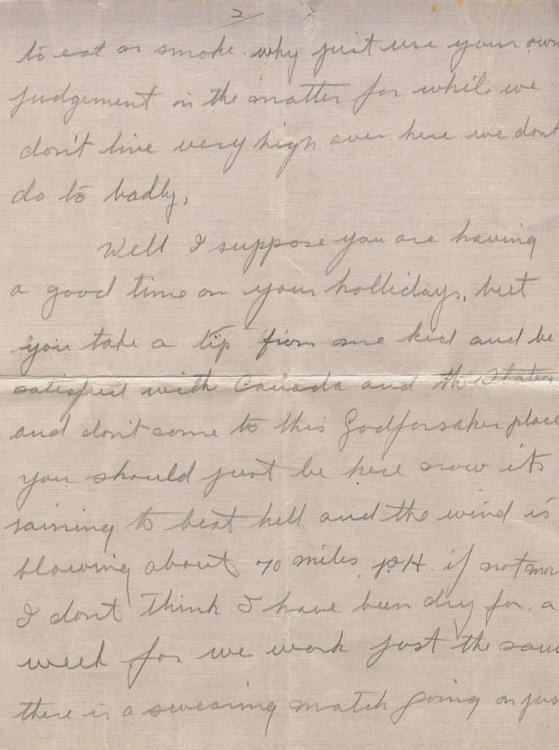 2
to eat or smoke. why just use your own
judgement in the matter for while we
don't live very high over here we dont
do to badly,
Well I suppose you are having
a good time on your hollidays, but
you take a tip from me kid and be
satisfied with Canada and the States
and don't come to this Godforsaken place
you should just be here now its
raining to beat hell and the wind is
blowing about 70 miles p.H. if not more
I dont think I have been dry for a
week for we work just the same
there is a swearing match going on just